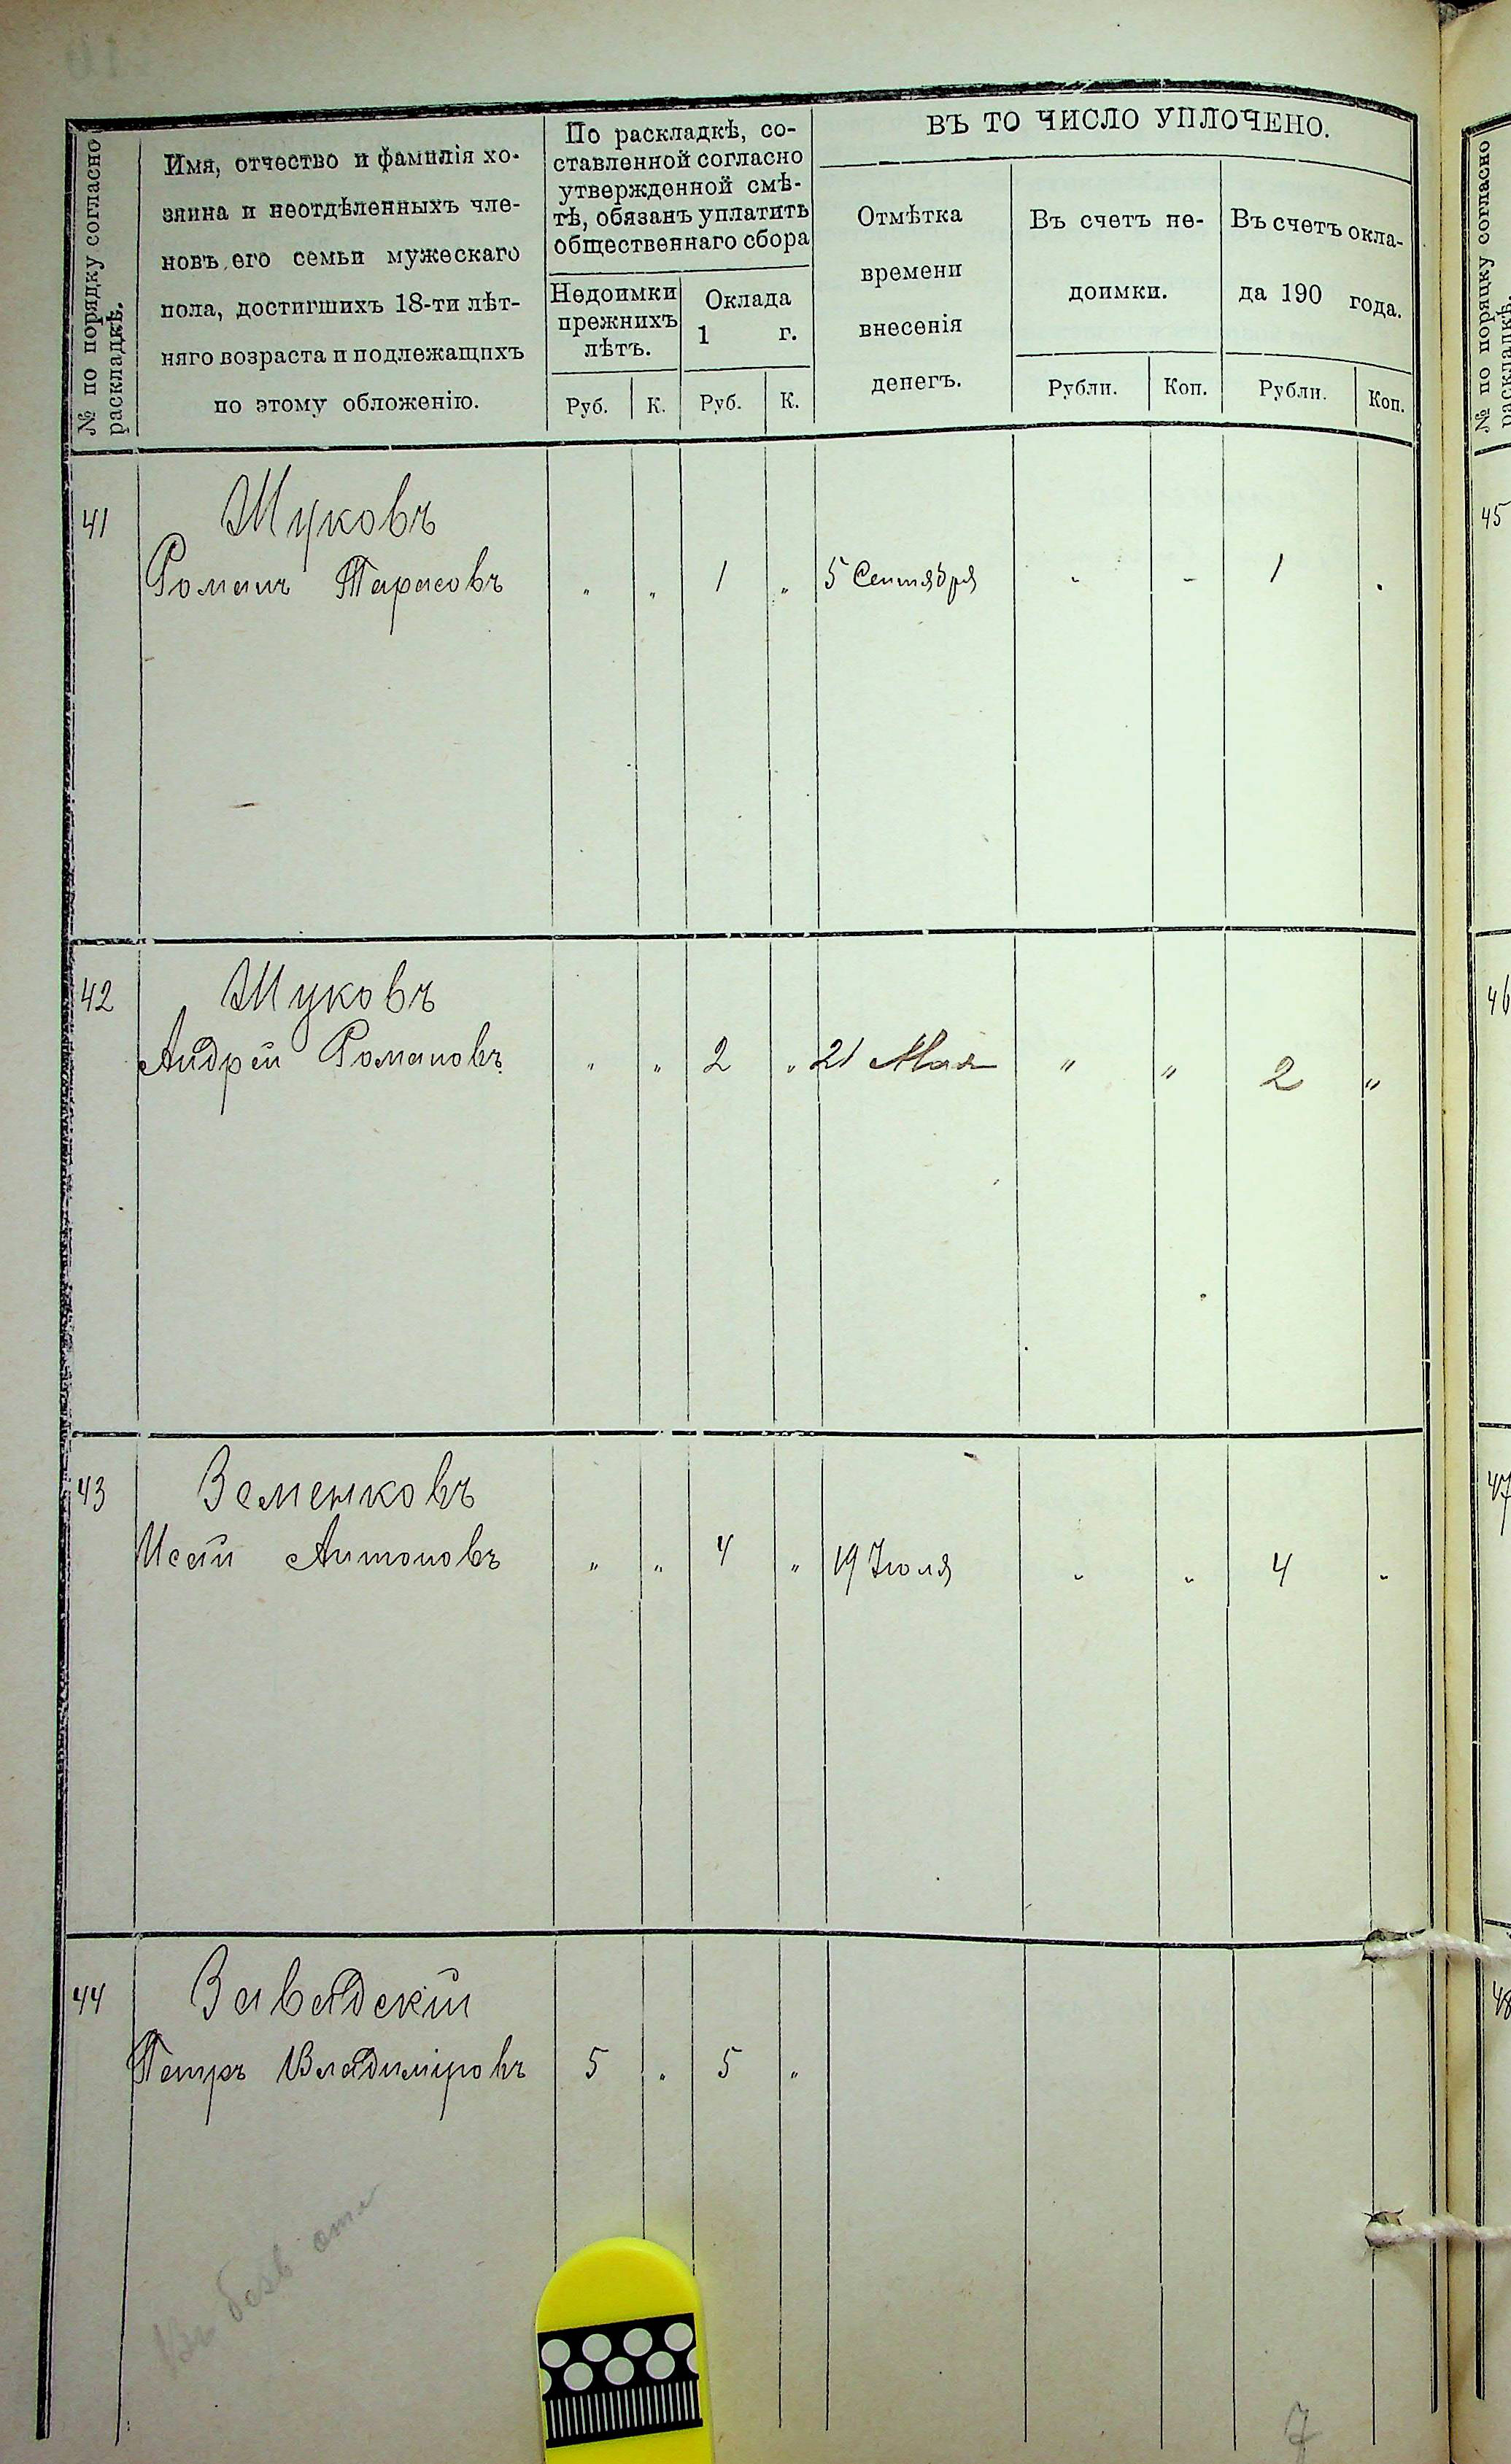 № по порядку согласно
раскладкѣ.
Имя, отчество и фамилія хо-
зяина и неотдѣленныхъ чле-
новъ его семьи мужескаго
пола, достигшихъ 18-ти лѣт-
няго возраста и подлежащихъ
по этому обложенію.
По раскладкѣ, со-
ставленной согласно
утвержденной смѣ-
тѣ, обязанъ уплатить
общественнаго сбора
Недоимки
прежнихъ
лѣтъ.
Руб. К.
Оклада
1 г.
Руб. К.
ВЪ ТО ЧИСЛО УПЛОЧЕНО.
Отмѣтка
времени
внесенія
денегъ.
Въ счетъ не-
доимки.
Рубли. Коп.
Въ счетъ окла-
да 190 года.
Рубли. Коп.
41 Жуковъ
Романъ Тарасовъ " " 1 " 5 Сентября - - 1 .
42 Жуковъ
Андрей Романовъ " " 2 " 21 Мая " " 2 "
43 Земенковъ
Исай Антоновъ " " 4 " 19 Іюля " " 4 "
44 Завадскій
Петръ Владиміровъ 5 " 5 "
7
№ по порядку согласно
раскладкѣ.
45
46
47
48